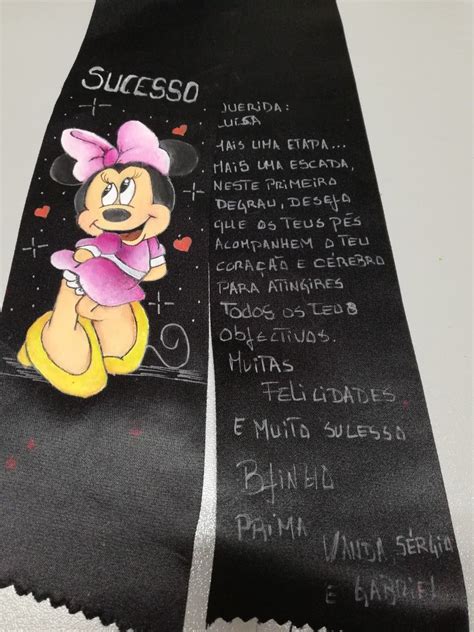 SUCESSO
QUERIDA:
LUISA
MAIS UMA ETAPA...
MAIS UMA ESCADA,
NESTE PRIMEIRO
DEGRAU, DESEJO
QUE OS TEUS PÉS
ACOMPANHEM O TEU
CORAÇÃO E CÉREBRO
PARA ATINGIRES
TODOS OS TEUS
OBJECTIVOS.
MUITAS
FELICIDADES
E MUITO SUCESSO
BJINHO
PRIMA
VANDA, SÉRGIO
E GABRIEL